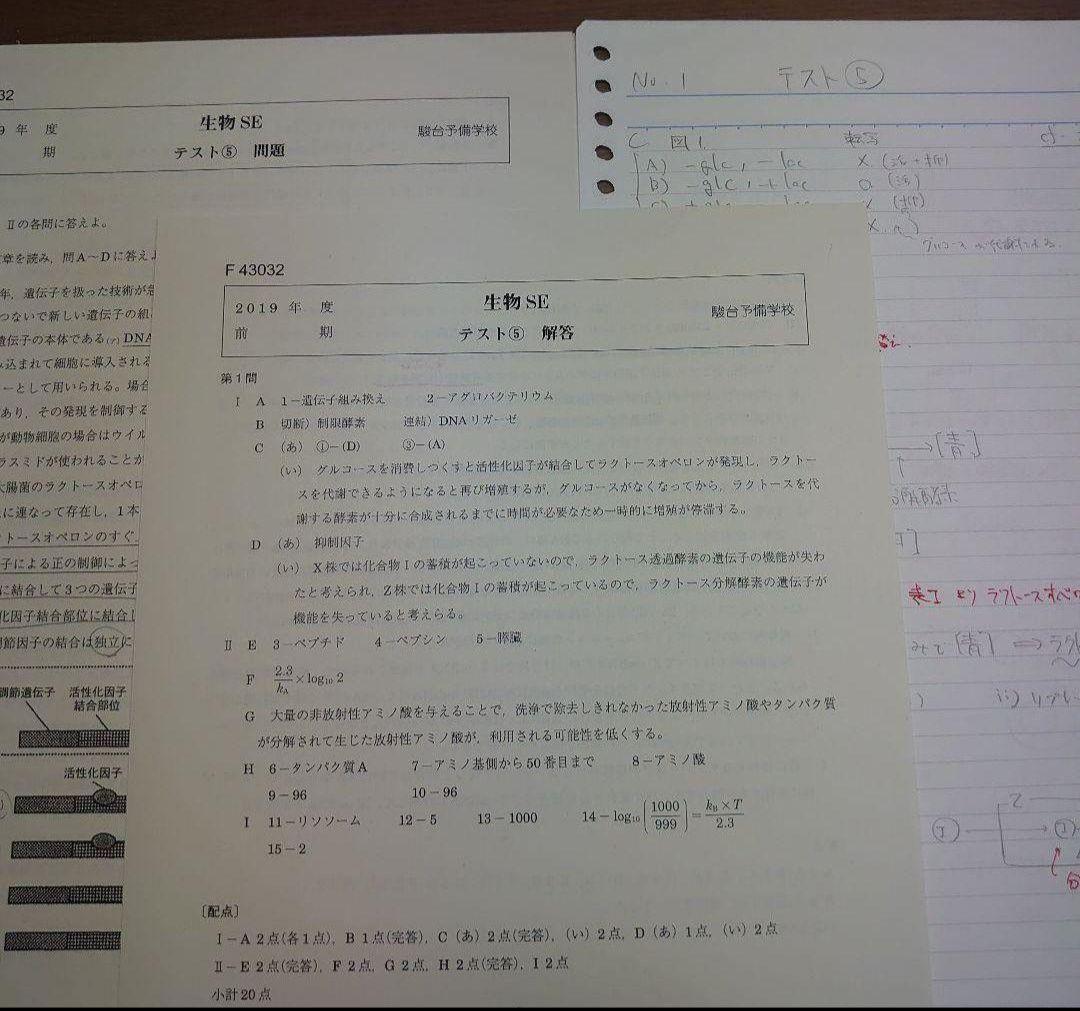 32
9 年 度
期
生物 SE
テスト⑤ 問題
駿台予備学校
Ⅱの各問に答えよ。
章を読み，問A～Dに答え
年，遺伝子を扱った技術が
つないで新しい遺伝子の組
遺伝子の本体である(ア)DNA
み込まれて細胞に導入される
ーとして用いられる。場合
あり，その発現を制御する
が動物細胞の場合はウイル
ラスミドが使われることが
大腸菌のラクトースオペロ
に連なって存在し，1本
トースオペロンのすぐ
子による正の制御によっ
に結合して3つの遺伝子
化因子結合部位に結合し
調節因子の結合は独立に
調節遺伝子 活性化因子
結合部位
活性化因子
No. 1 テスト⑤
C 図1. 転写
A) -glc, -lac × (活+抑)
B) -glc, +lac ○ (活)
(抑)
F 43032
2019 年 度
前 期
生物 SE
テスト⑤ 解答
駿台予備学校
第1問
Ⅰ A 1－遺伝子組み換え 2－アグロバクテリウム
B 切断）制限酵素 連結）DNAリガーゼ
C （あ）①－(D) ③－(A)
（い）グルコースを消費しつくすと活性化因子が結合してラクトースオペロンが発現し，ラクトー
スを代謝できるようになると再び増殖するが，グルコースがなくなってから，ラクトースを代
謝する酵素が十分に合成されるまでに時間が必要なため一時的に増殖が停滞する。
D （あ）抑制因子
（い）X株では化合物Ⅰの蓄積が起こっていないので，ラクトース透過酵素の遺伝子の機能が失わ
れたと考えられ，Z株では化合物Ⅰの蓄積が起こっているので，ラクトース分解酵素の遺伝子が
機能を失っていると考えらる。
Ⅱ E 3－ペプチド 4－ペプシン 5－膵臓
F 2.3/kA × log10 2
G 大量の非放射性アミノ酸を与えることで，洗浄で除去しきれなかった放射性アミノ酸やタンパク質
が分解されて生じた放射性アミノ酸が，利用される可能性を低くする。
H 6－タンパク質A 7－アミノ基側から50番目まで 8－アミノ酸
9－96 10－96
I 11－リソソーム 12－5 13－1000 14－log10(1000/999)＝kB×T/2.3
15－2
〔配点〕
Ⅰ－A 2点(各1点)，B 1点(完答)，C（あ）2点(完答)，（い）2点，D（あ）1点，（い）2点
Ⅱ－E 2点(完答)，F 2点，G 2点，H 2点(完答)，I 2点
小計20点
[青]